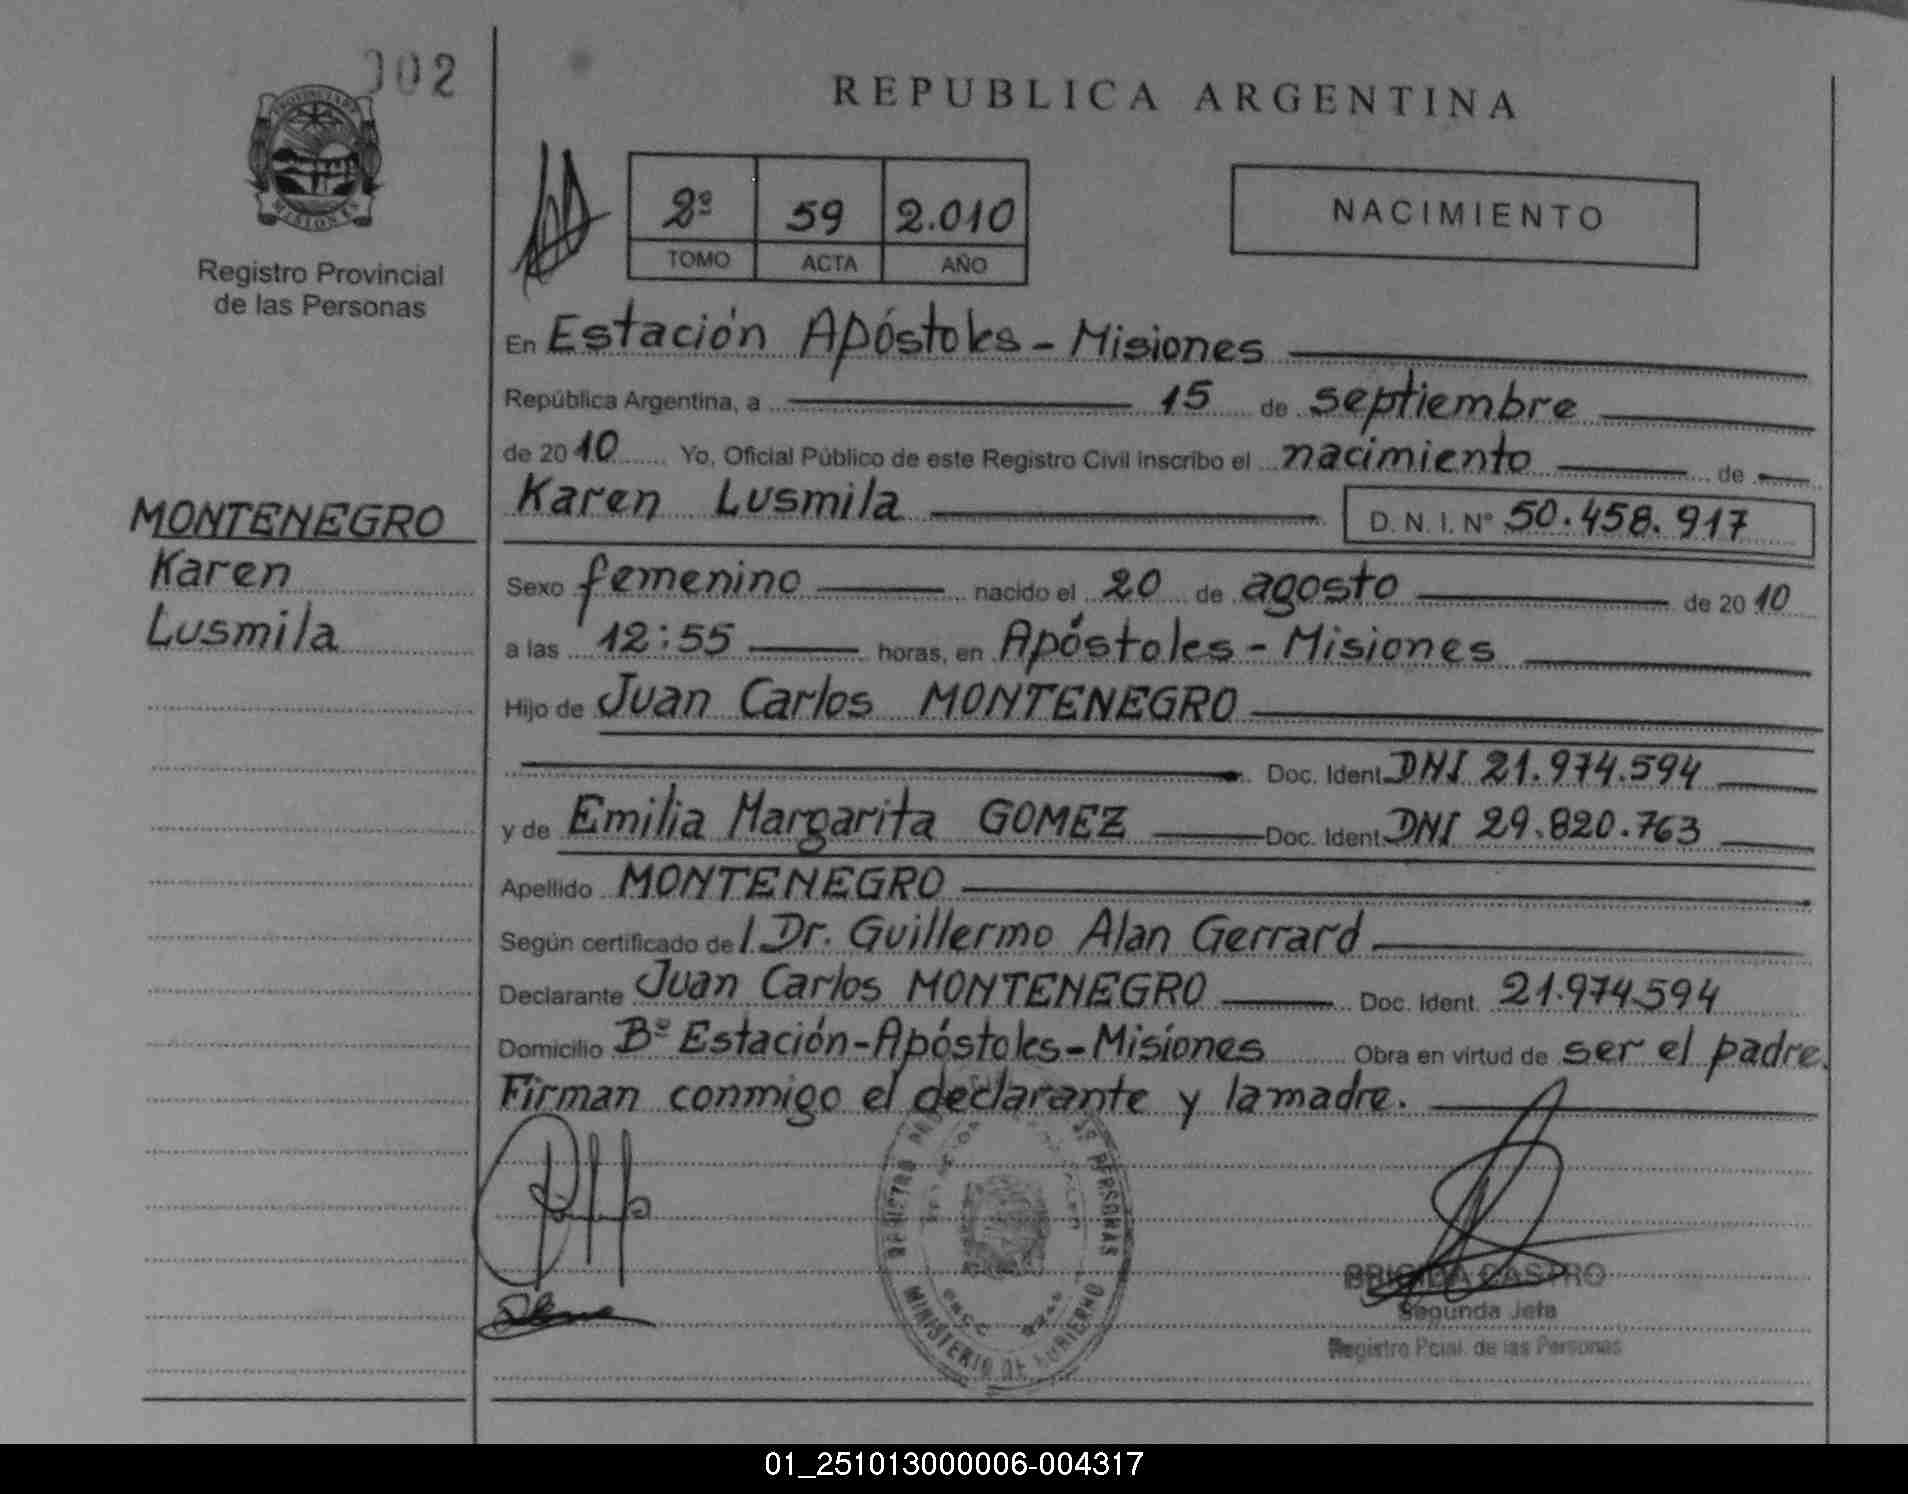 002
PROVINCIA DE
MISIONES
Registro Provincial
de las Personas
MONTENEGRO
Karen
Lusmila
REPUBLICA ARGENTINA
2º 59 2.010
TOMO ACTA AÑO
NACIMIENTO
En Estación Apóstoles - Misiones
República Argentina, a 15 de septiembre
de 2010 Yo, Oficial Público de este Registro Civil inscribo el nacimiento de
Karen Lusmila D. N. I. Nº 50.458.917
Sexo femenino nacido el 20 de agosto de 2010
a las 12:55 horas, en Apóstoles - Misiones
Hijo de Juan Carlos MONTENEGRO
Doc. Ident. DNI 21.974.594
y de Emilia Margarita GOMEZ Doc. Ident. DNI 29.820.763
Apellido MONTENEGRO
Según certificado de l. Dr. Guillermo Alan Gerrard
Declarante Juan Carlos MONTENEGRO Doc. Ident. 21.974.594
Domicilio Bº Estación-Apóstoles-Misiones Obra en virtud de ser el padre.
Firman conmigo el declarante y la madre.
REGISTRO PERSONAS
MINISTERIO DE GOBIERNO
BRIGIDA CASTRO
Segunda Jefa
Registro Pcial. de las Personas
01_251013000006-004317